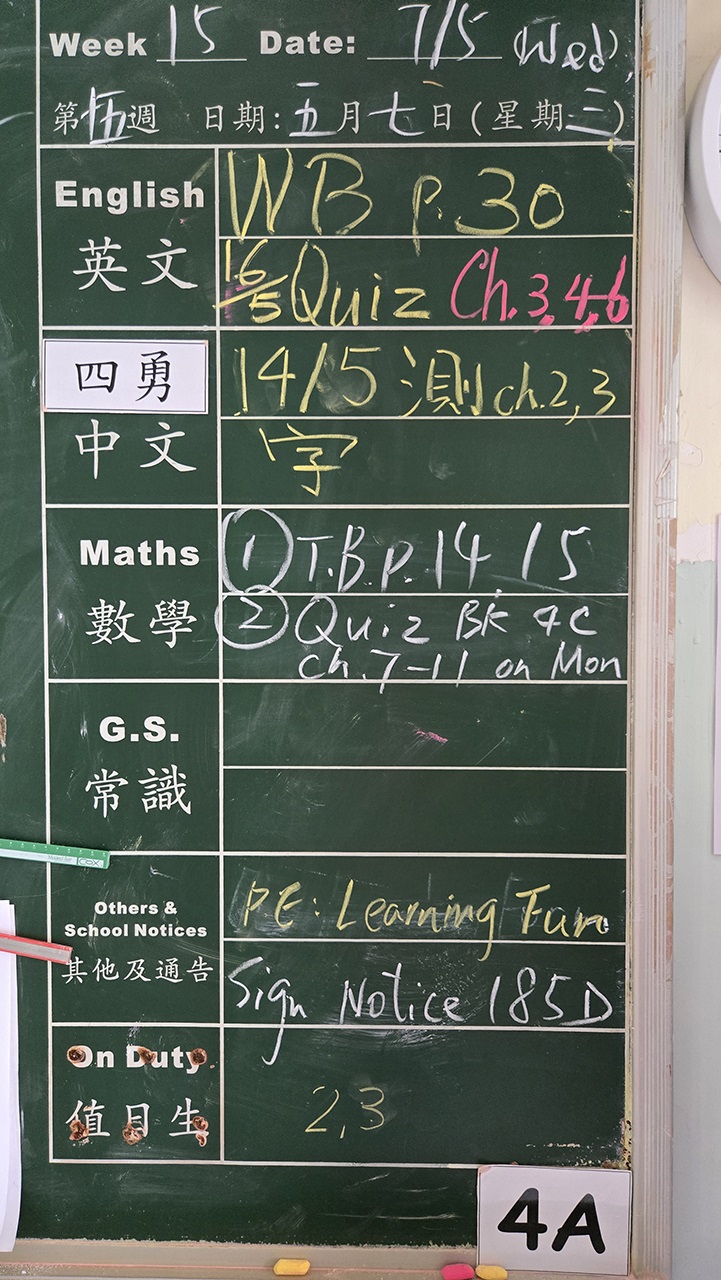 Week 15 Date: 7/5 (Wed)
第 十五 週 日期: 五 月 七 日 (星期 三)
English
英文
WB p.30
16/5 Quiz Ch.3,4,6
四勇
中文
14/5 測 ch.2,3
字
Maths
數學
① T.B.p.14 15
② Quiz BK 4C
ch.7-11 on Mon
G.S.
常識
Others &
School Notices
其他及通告
P.E: Learning Fun
Sign Notice 185D
On Duty
值日生
2,3
4A
COX